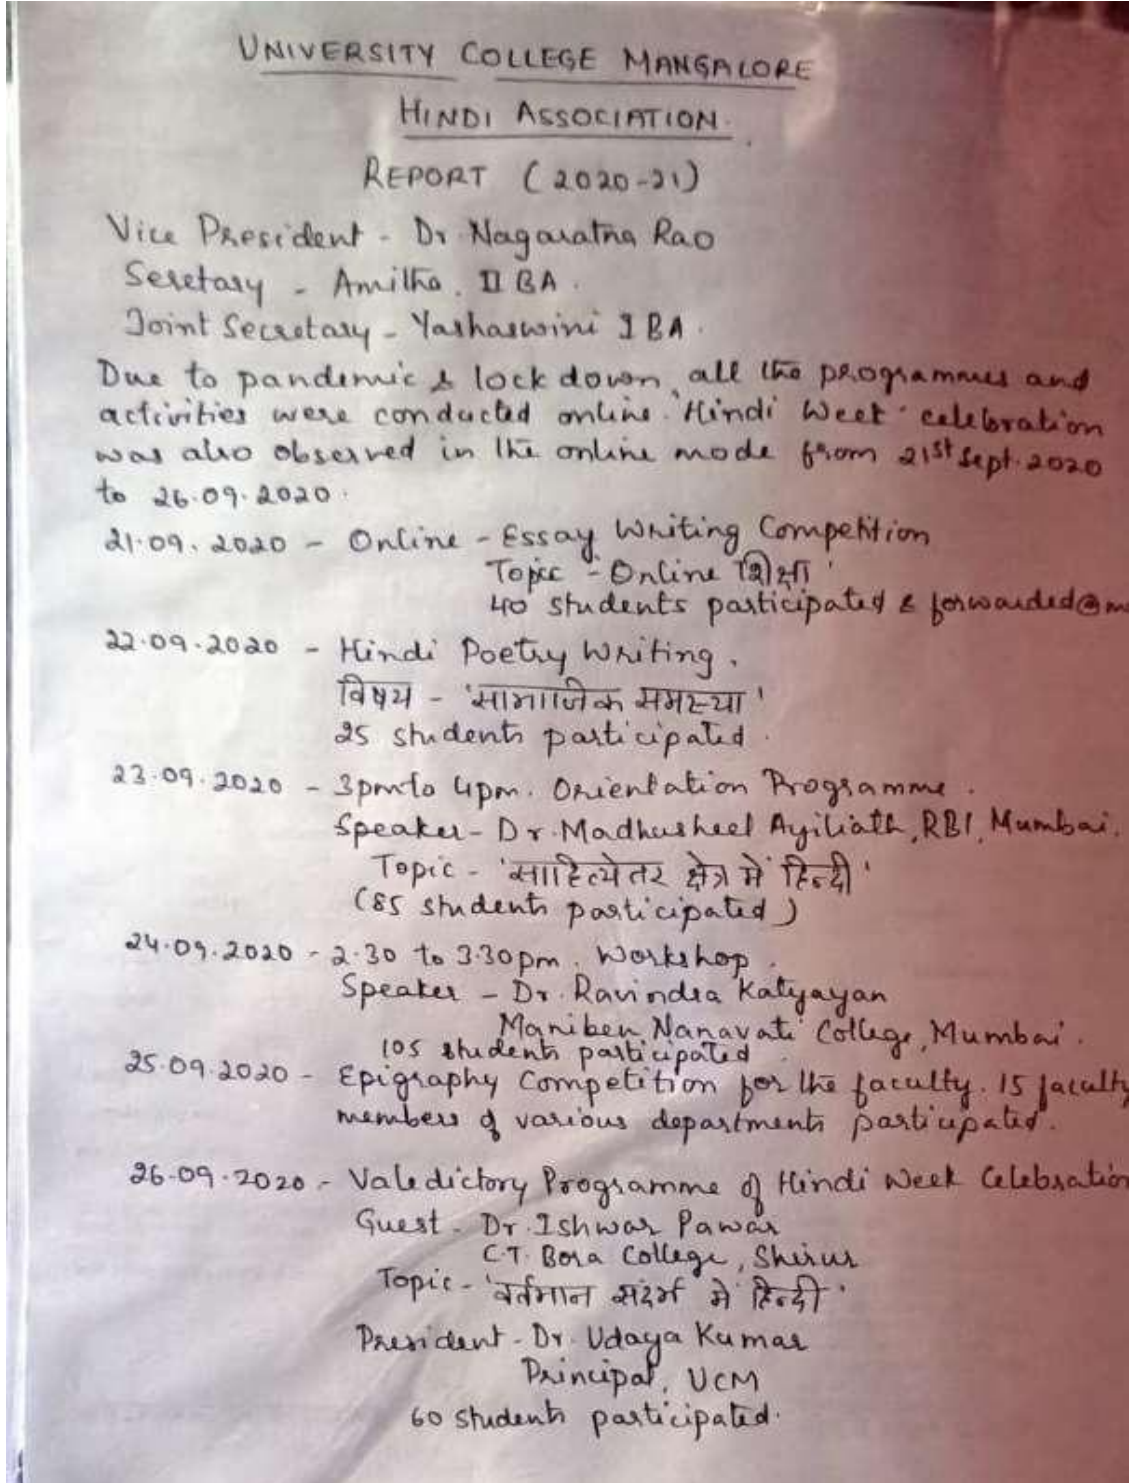 UNIVERSITY COLLEGE MANGALORE
HINDI ASSOCIATION.
REPORT (2020-21)
Vice President - Dr. Nagaratna Rao
Seretary - Amitha. II BA.
Joint Secretary - Yashaswini I BA.
Due to pandemic & lock down, all the programmes and
activities were conducted online. 'Hindi Week' celebration
was also observed in the online mode from 21st Sept. 2020
to 26.09.2020.
21.09.2020 - Online - Essay Writing Competition
Topic - 'Online शिक्षा'
40 students participated & forwarded
22.09.2020 - Hindi Poetry Writing.
विषय - 'सामाजिक समस्या'
25 students participated.
23.09.2020 - 3pm to 4pm. Orientation Programme.
Speaker - Dr. Madhusheel Ayiliath, RBI, Mumbai.
Topic - 'साहित्येतर क्षेत्र में हिन्दी'
(85 students participated)
24.09.2020 - 2.30 to 3.30pm. Workshop.
Speaker - Dr. Ravindra Katyayan
Maniben Nanavati College, Mumbai.
105 students participated.
25.09.2020 - Epigraphy Competition for the faculty. 15 faculty
members of various departments participated.
26-09-2020 - Valedictory Programme of Hindi Week Celebration
Guest - Dr. Ishwar Pawar
C.T. Bora College, Shirur
Topic - 'वर्तमान संदर्भ में हिन्दी'
President - Dr. Udaya Kumar
Principal, UCM
60 students participated.